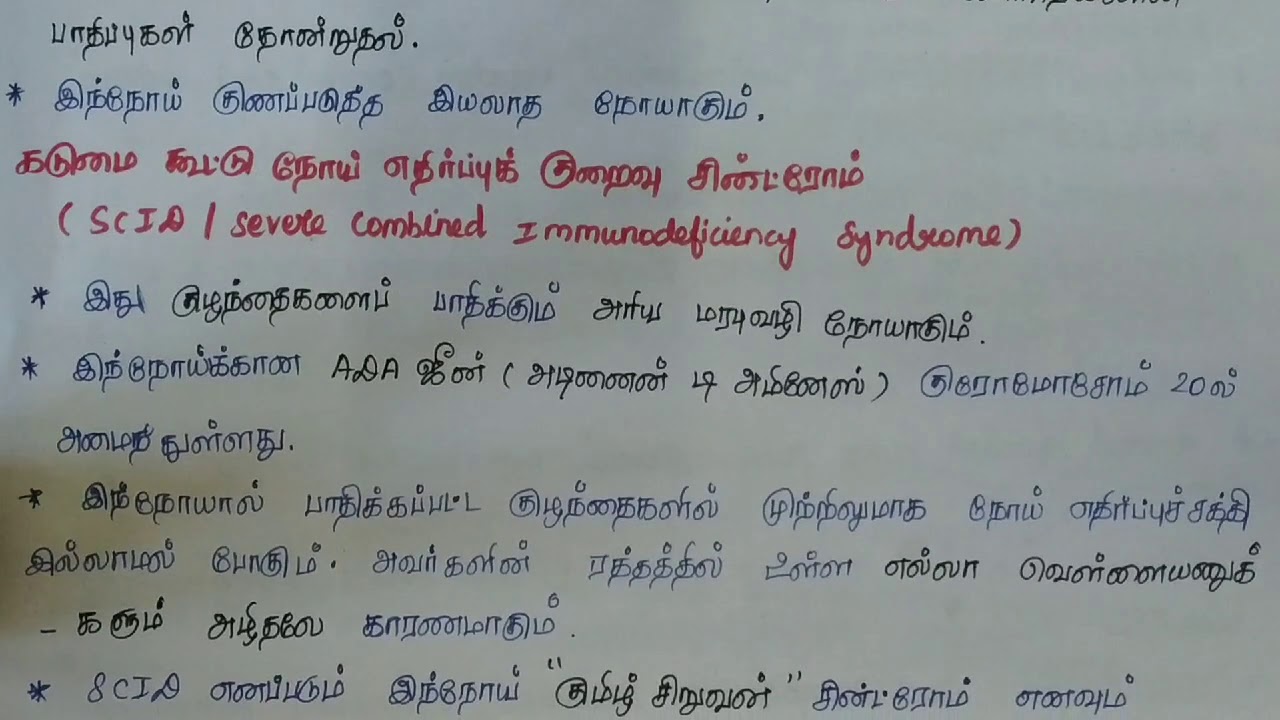 பாதிப்புகள் தோன்றுதல்.
* இந்நோய் குணப்படுத்த இயலாத நோயாகும்.
கடுமை கூட்டு நோய் எதிர்ப்புக் குறைவு சிண்ட்ரோம்
( SCID / severe combined Immunodeficiency Syndrome)
* இது குழந்தைகளைப் பாதிக்கும் அரிய மரபுவழி நோயாகும்.
* இந்நோய்க்கான ADA ஜீன் ( அடினைன் டி அமினேஸ் ) குரோமோசோம் 20ல்
அமைந்துள்ளது.
* இந்நோயால் பாதிக்கப்பட்ட குழந்தைகளில் முற்றிலுமாக நோய் எதிர்ப்புச்சக்தி
இல்லாமல் போகும். அவர்களின் ரத்தத்தில் உள்ள எல்லா வெள்ளையணுக்
- களும் அழிதலே காரணமாகும்.
* SCID எனப்படும் இந்நோய் "குமிழ் சிறுவன்" சிண்ட்ரோம் எனவும்